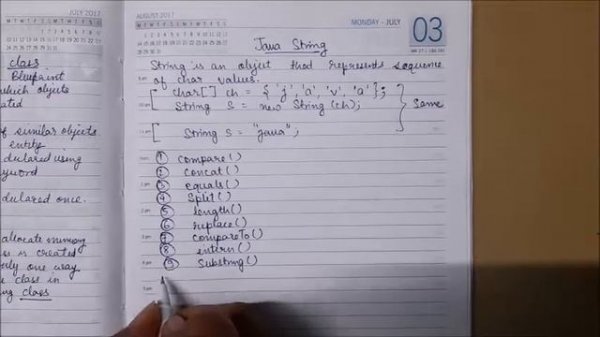 JULY 2017
class
Blueprint
which objects
ated
of similar objects
entity
declared using
yword
declared once.
allocate memory
is created
only one way
class in
class
AUGUST 2017
MONDAY - JULY
03
Java String
String is an object that represents sequence
of char values.
char[] ch = { 'j', 'a', 'v', 'a' };
String S = new String (ch);
Same
String S = "java";
① compare()
② concat()
③ equals()
④ Split()
⑤ length()
⑥ replace()
⑦ compareTo()
⑧ intern()
⑨ Substring()